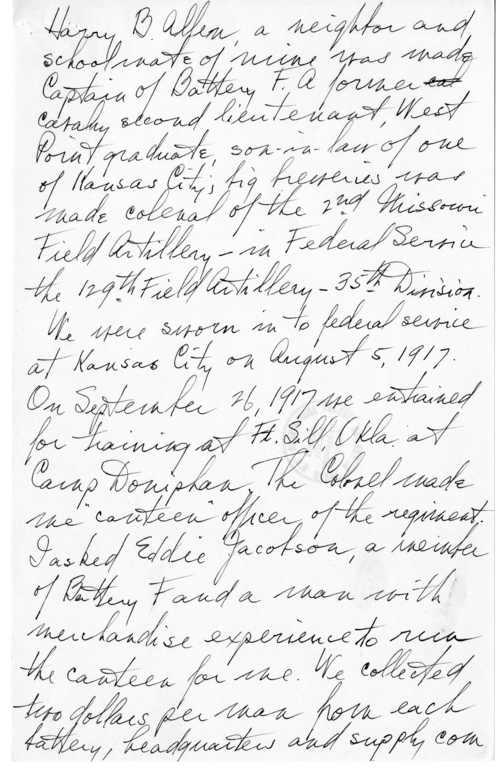 Harry B. Allen, a neighbor and
schoolmate of mine was made
Captain of Battery F. A former cal
cavalry second lieutenant, West
Point graduate, son-in-law of one
of Kansas City's big breweries was
made colonal of the 2nd Missouri
Field Artillery - in Federal Service
the 129th Field Artillery - 35th Division.
We were sworn in to federal service
at Kansas City on August 5, 1917.
On September 26, 1917 we entrained
for training at Ft. Sill, Okla, at
Camp Doniphan. The Colonel made
me "canteen" officer of the regiment.
I asked Eddie Jacobson, a member
of Battery F and a man with
merchandise experience to run
the canteen for me. We collected
two dollars per man from each
battery, headquarters and supply com